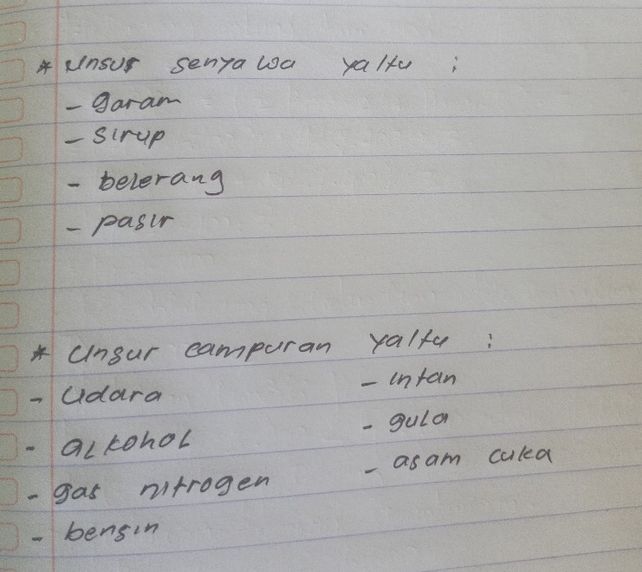 * Unsur senyawa yaitu :
- garam
- Sirup
- belerang
- pasir
* Unsur campuran yaitu :
- Udara
- alkohol
- gas nitrogen
- bensin
- intan
- gula
- asam cuka